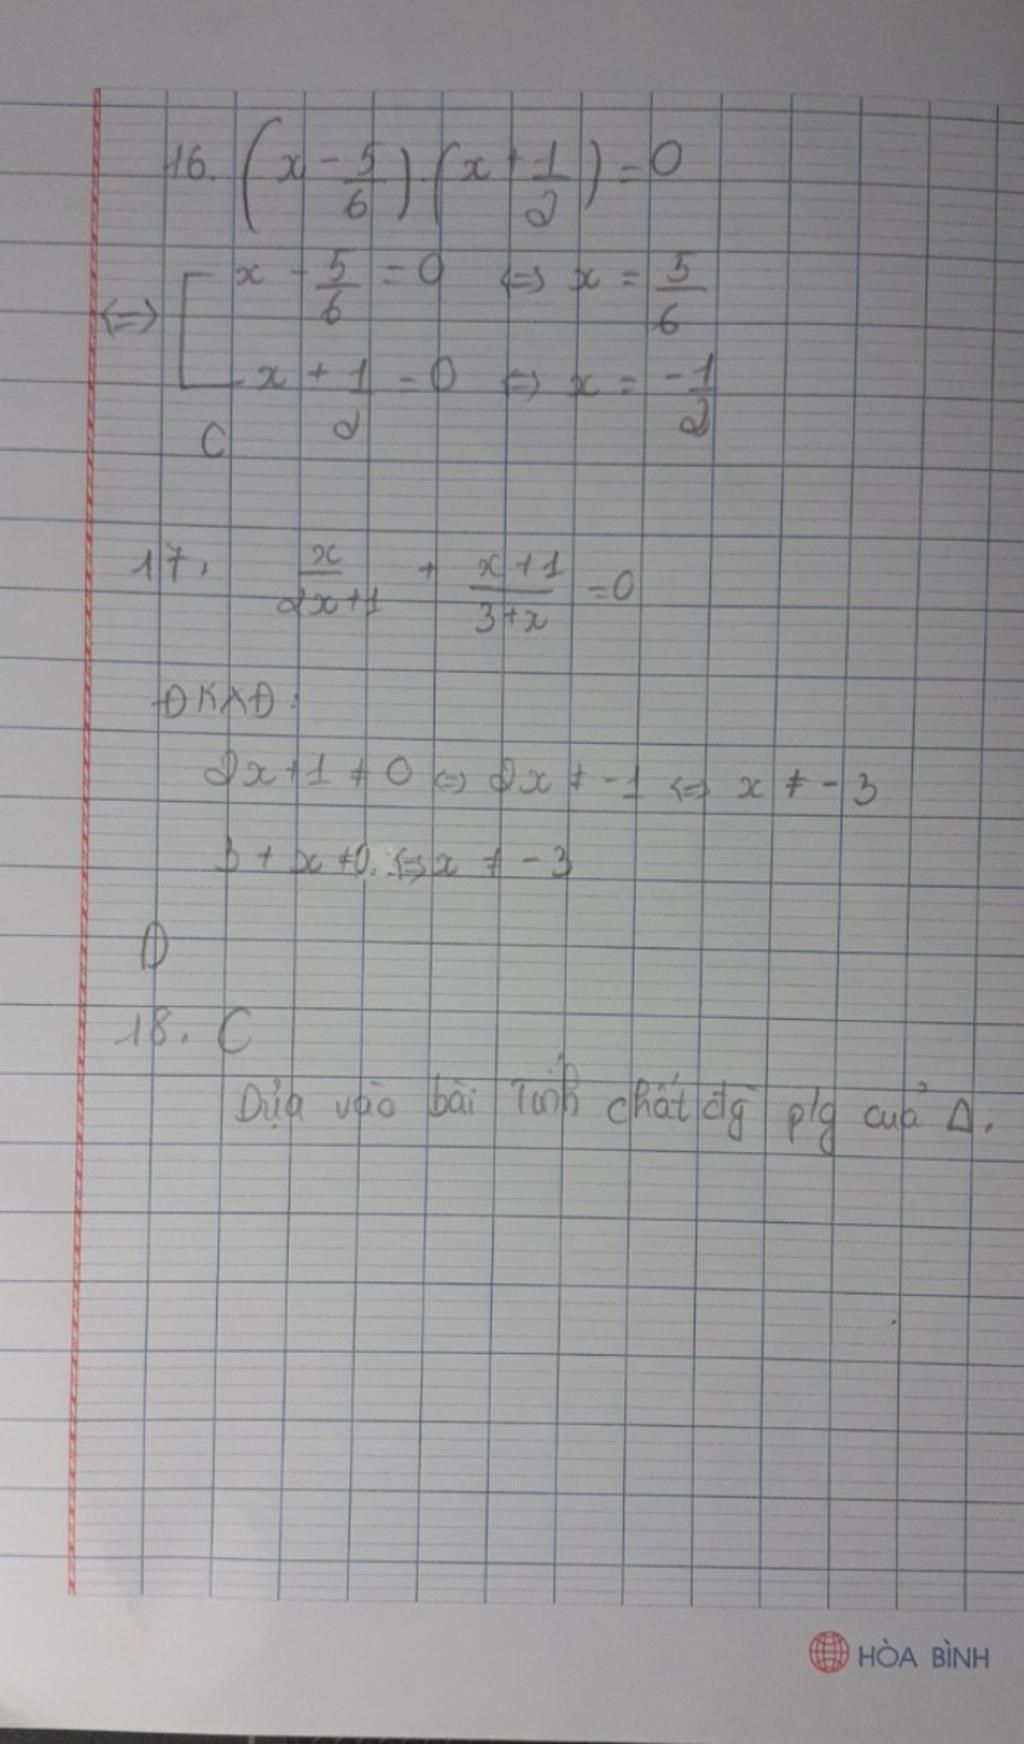 16. (x - 5/6).(x + 1/2) = 0
⇔ [ x - 5/6 = 0 ⇔ x = 5/6
x + 1/2 = 0 ⇔ x = -1/2
C
17. x/2x+1 + x+1/3+x = 0
ĐKXĐ:
2x + 1 ≠ 0 ⇔ 2x ≠ -1 ⇔ x ≠ -3
3 + x ≠ 0. ⇔ x ≠ -3
D
18. C
Dựa vào bài Tính chất đg plg của Δ.
HÒA BÌNH